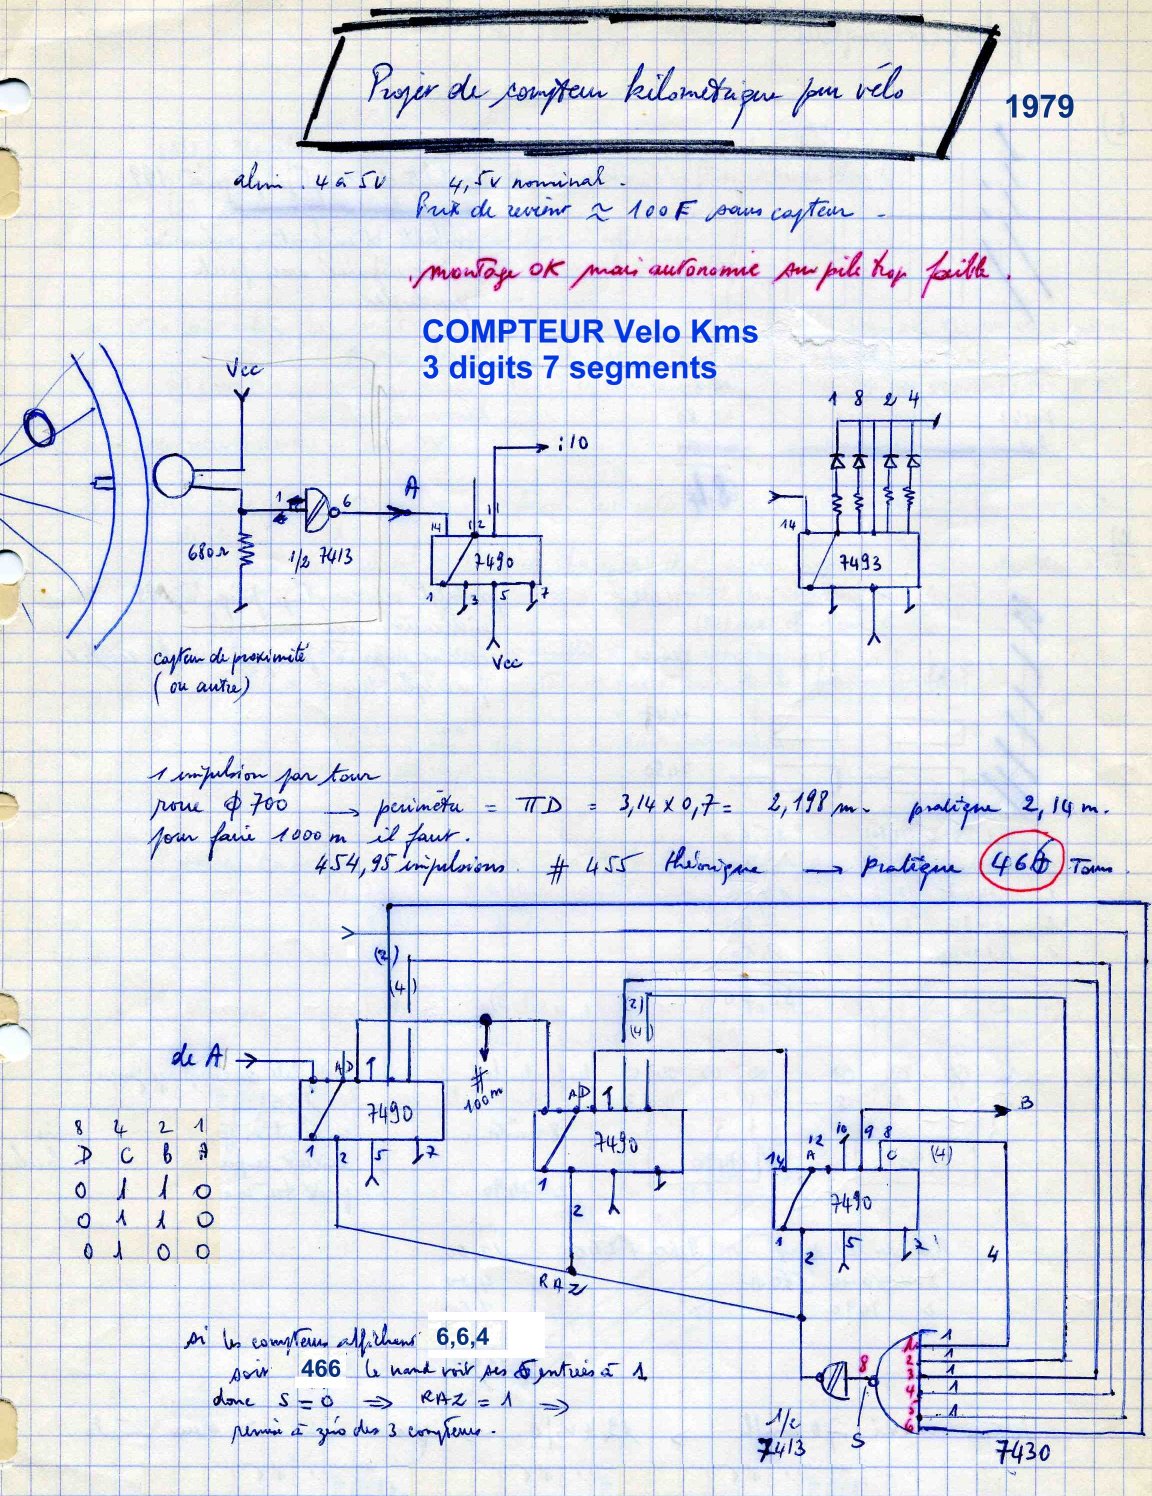 Projet de compteur kilometrique pour vélo
1979
alim. 4 à 5V 4,5V nominal.
Prix de revient ≈ 100F sans capteur -
montage OK mais autonomie sur pile trop faible.
COMPTEUR Velo Kms
3 digits 7 segments
Vcc
1 8 2 4
:10
1 6 A
14 12 11
14
680Ω 1/2 7413 7490
7493
1 3 5 7
Vcc
capteur de proximité
(ou autre)
1 impulsion par tour
roue Φ 700 → perimètre = ΠD = 3,14 x 0,7 = 2,198 m. pratique 2,14 m.
pour faire 1000 m il faut.
454,95 impulsions. # 455 théorique → pratique 466 Tours.
(2)
(4)
(2)
(4)
de A
A D 1
# 100m
7490
A D 1
B
8 4 2 1
D C B A
0 1 1 0
0 1 1 0
0 1 0 0
1 2 5 7
7490
1 2
12 10 9 8
14 A C (4)
7490
1 2 5 7
4
RAZ
si les compteurs affichent 6,6,4
soit 466 le nand voit ses 6 entrées à 1
donc S = 0 ⇒ RAZ = 1 ⇒
remise à zéro des 3 compteurs.
8
1 1
2 1
3 1
4 1
5 1
6
1/2
7413
S
7430